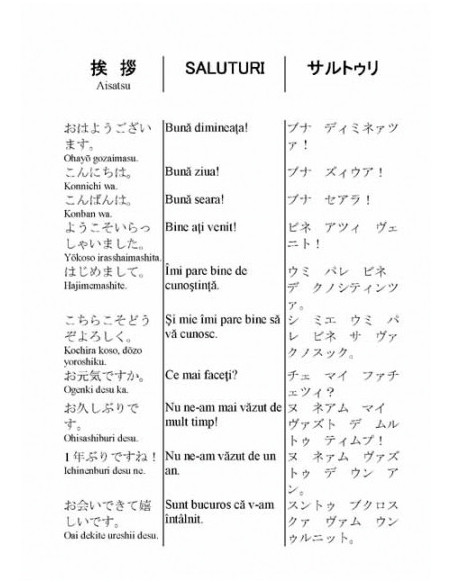 挨 拶 SALUTURI サルトゥリ
Aisatsu
おはようござい Bună dimineața! ブナ ディミネァツ
ます。 ァ！
Ohayō gozaimasu.
こんにちは。 Bună ziua! ブナ ズィウア！
Konnichi wa.
こんばんは。 Bună seara! ブナ セアラ！
Konban wa.
ようこそいらっ Bine ați venit! ビネ アツィ ヴェ
しゃいました。 ニト！
Yōkoso irasshaimashita.
はじめまして。 Îmi pare bine de ウミ パレ ビネ
Hajimemashite. cunoștință. デ クノシティンツ
ァ。
こちらこそどう Și mie îmi pare bine să シ ミエ ウミ パ
ぞよろしく。 vă cunosc. レ ビネ サ ヴァ
Kochira koso, dōzo クノスック。
yoroshiku.
お元気ですか。 Ce mai faceți? チェ マイ ファチ
Ogenki desu ka. ェツィ？
お久しぶりで Nu ne-am mai văzut de ヌ ネアム マイ
す。 mult timp! ヴァズト デ ムル
Ohisashiburi desu. トゥ ティムプ！
1年ぶりですね！ Nu ne-am văzut de un ヌ ネァム ヴァズ
Ichinenburi desu ne. an. トゥ デ ウン ア
ン。
お会いできて嬉 Sunt bucuros că v-am スントゥ ブクロス
しいです。 întâlnit. クァ ヴァム ウン
Oai dekite ureshii desu. ゥルニット。